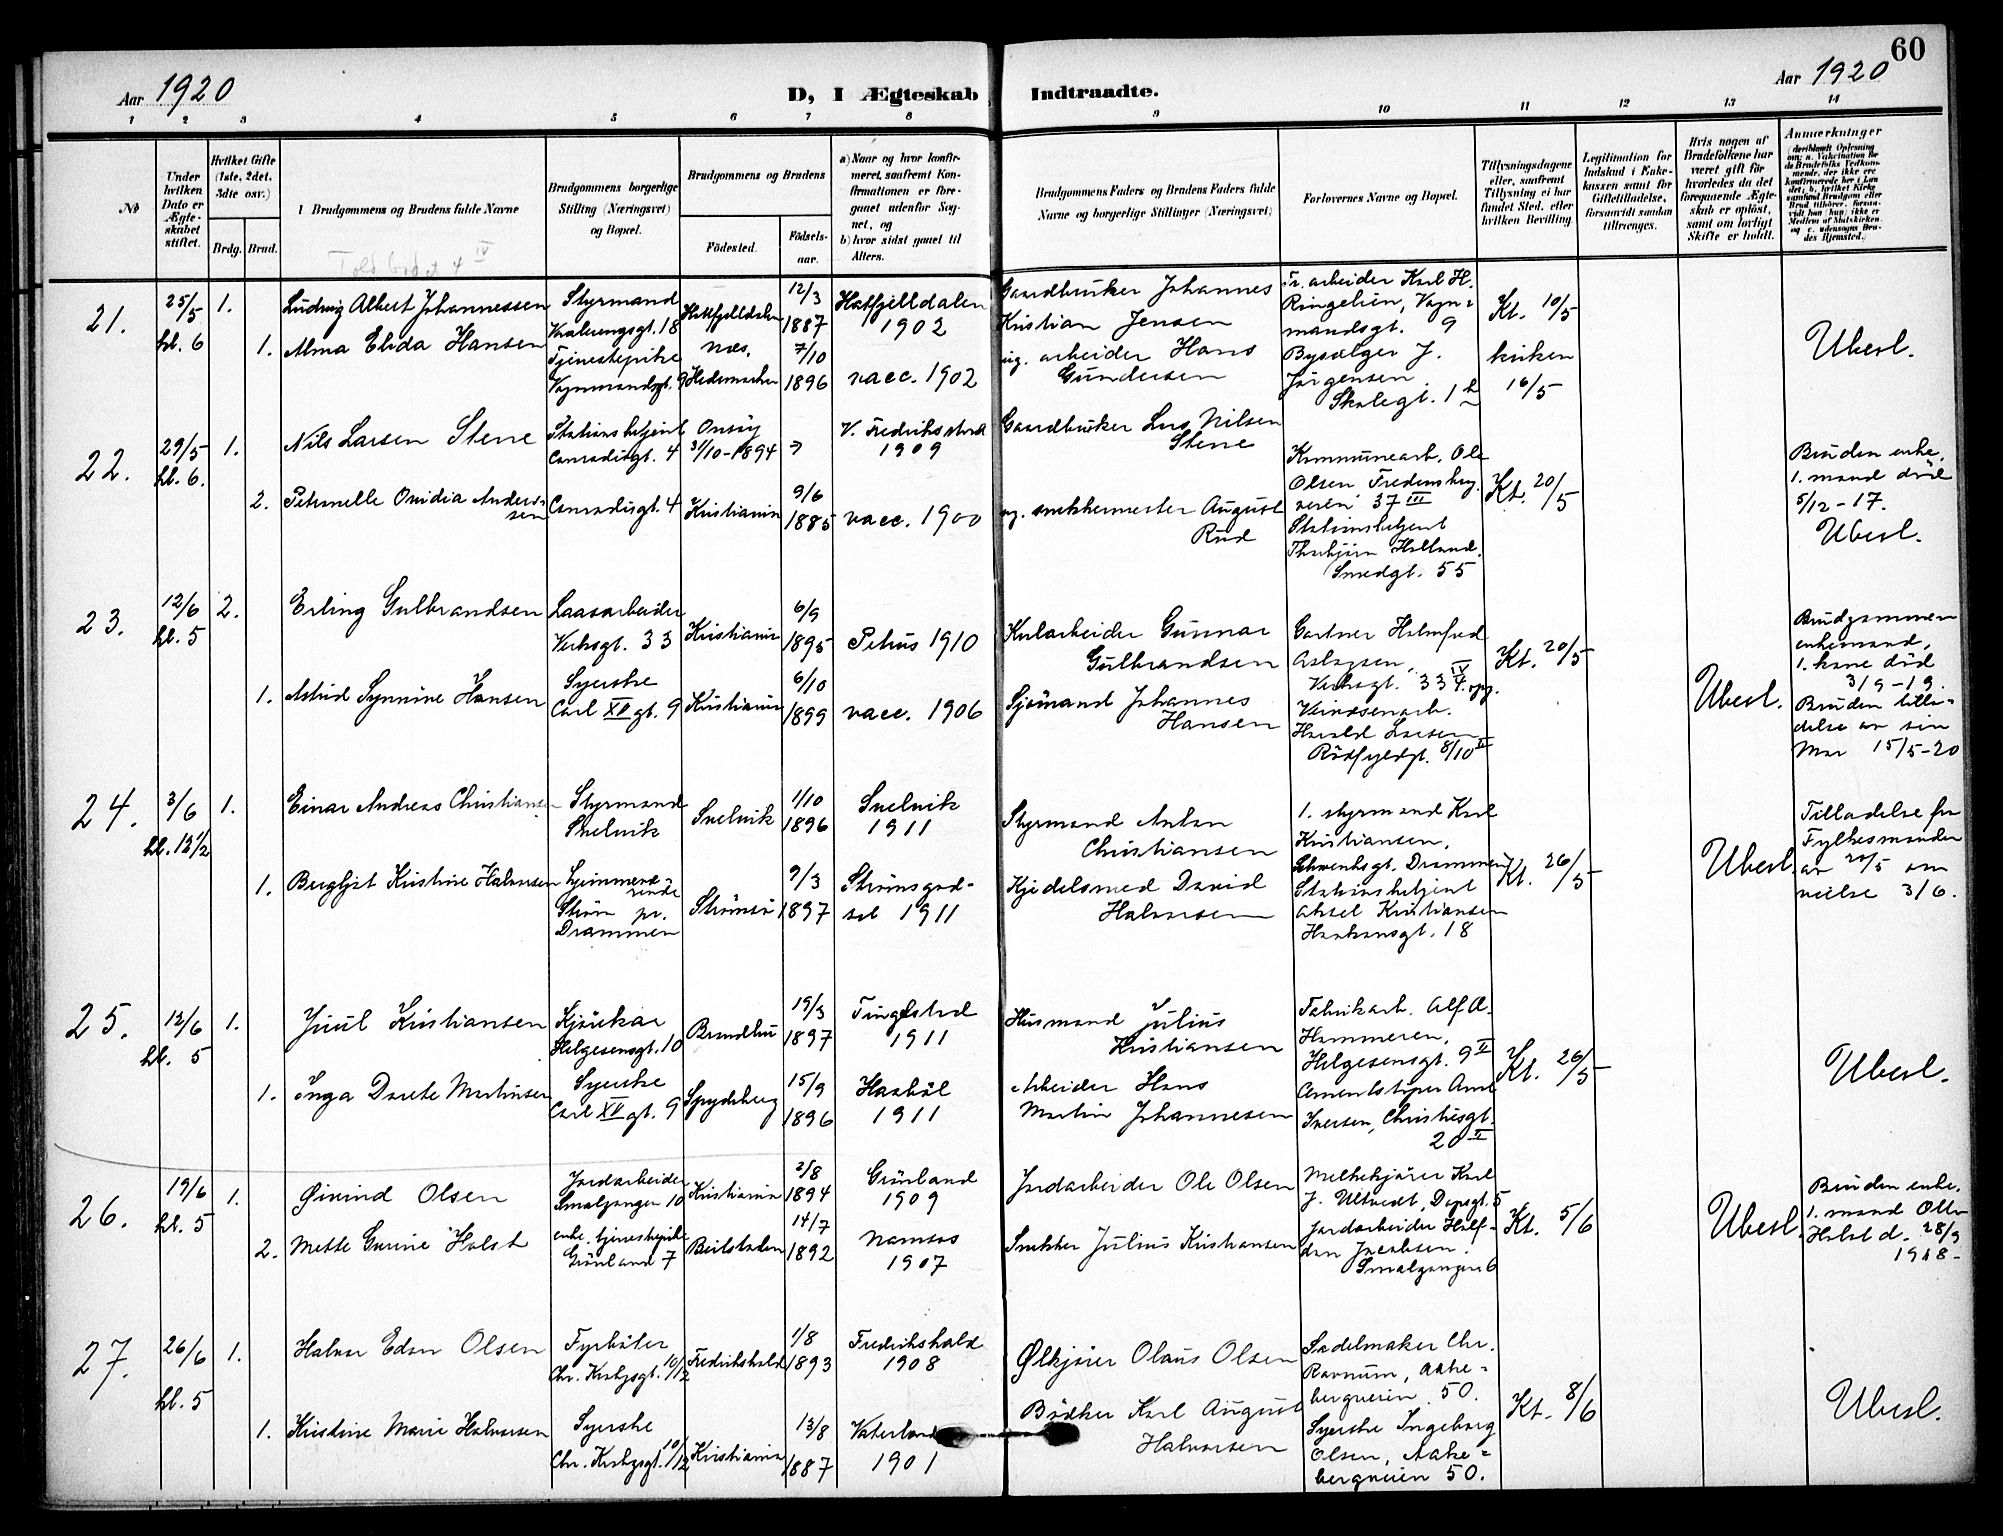 60
Aar 1920
D, I Ægteskab Indtraadte.
Aar 1920
1 2 3 4 5 6 7 8 9 10 11 12 13 14
No
Under hvilken Dato er Ægteskabet stiftet.
Hvilket Gifte (1ste, 2det, 3die osv.)
Brdg. Brud.
Brudgommens og Brudens fulde Navne
Brudgommens borgerlige Stilling (Næringsvei) og Bopæl.
Brudgommens og Brudens
Fødested.
Fødselsaar.
a) Naar og hvor konfirmeret, saafremt Konfirmationen er foregaaet udenfor Sognet, og
b) hvor sidst gaaet til Alters.
Brudgommens Faders og Brudens Faders fulde Navne og borgerlige Stillinger (Næringsvei)
Forlovernes Navne og Bopæl.
Tillysningsdagene eller, saafremt Tillysning ei har fundet Sted, efter hvilken Bevilling.
Legitimation for Indskud i Enkekassen samt for Giftetilladelse, forsaavidt saadan tiltrænges.
Hvis nogen af Brudefolkene har været gift før hvorledes da det foregaaende Ægteskab er opløst, samt om lovligt Skifte er holdt.
Anmerkninger
21.
25/5
kl. 6
1.
Ludvig Albert Johannessen
Styrmand
Hatfjelldalen
12/3
1887
Hatfjelldalen
1902
Gaardbruker Johannes
Kristian Jensen
Fr. arbeider Karl H.
Ringelien, Vognmandsgt. 9
Kt. 10/5
1.
Alma Elida Hansen
Tjenestepike
Vognmandsgt. 9
Næs,
Hedemarken
7/10
1896
vacc. 1902
ug. arbeider Hans
Gundersen
J.
Jørgensen
kirken
16/5
Ubesl.
22.
29/5
kl. 6.
1.
Nils Larsen Stene
Stationsbetjent
Conradisgt. 4
Onsøy
31/10-1894
V. Fredriksstad
1909
Gaardbruker Lars Nilsen
Stene
Kommunearb. Ole
Olsen
37 III
Kt. 20/5
Bruden enke,
1. mand død
5/12-17.
Ubesl.
2.
Petrnelle Ovidia Anderssen
Conradisgt. 4
Kristiania
9/6
1885
vacc. 1900
ug. snekkermester August
Rud
Stationsbetjent
Thorbjørn Holland.
Smedgt. 55
23.
12/6
kl. 5
2.
Erling Gulbrandsen
Laasarbeider
Verksgt. 33
Kristiania
6/9
1895
Petrus 1910
Kularbeider Gunnar
Gulbrandsen
Gartner
Aslagsen,
Verksgt. 33 IV
Kt. 20/5
Brudgommen
enkemand,
1. kone død
3/9-19.
1.
Astrid Synnøve Hansen
Syerske
Carl XII gt. 9
Kristiania
6/10
1899
vacc. 1906
Sjømand Johannes
Hansen
Harald Larsen
Rødfyldgt. 8/10 II
Ubesl.
Bruden tilladelse av sin
Mor 15/5-20
24.
3/6
kl. 12 1/2
1.
Einar Andreas Christiansen
Styrmand
Svelvik
Svelvik
1/10
1896
Svelvik
1911
Styrmand Anton
Christiansen
1. styrmand Karl
Kristiansen,
Schwenksgt. Drammen
Kt. 26/5
Ubesl.
Tilladelse fra
Fylkesmanden
av 20/5 om
vielse 3/6.
1.
Bergljot Kristine Halvorsen
hjemmeværende
Strøm pr.
Drammen
Strømsø
9/3
1897
Strømsgodset 1911
Kjedelsmed David
Halvorsen
Stationsbetjent
Aksel Kristiansen
Haakonsgt. 18
25.
12/6
kl. 5
1.
Juul Kristiansen
Kjørekar
Helgesensgt. 10
Brandbu
19/3
1897
Tingelstad
1911
Husmand Julius
Kristiansen
Fabrikarb. Alf A.
Hammeren,
Helgesensgt. 9 II
Kt. 26/5
Ubesl.
1.
Inga Dorete Martinsen
Syerske
Carl XV gt. 9
Spydeberg
15/9
1896
Haabøl
1911
Arbeider Hans
Martin Johannesen
Iversen, Christiesgt.
20 II
26.
19/6
kl. 5
1.
Øivind Olsen
Jordarbeider
Smalgangen 10
Kristiania
2/8
1894
Grønland
1909
Jordarbeider Ole Olsen
Melkekjører Karl
J. Ultvedt, Dopsgt. 5
Kt. 5/6
Ubesl.
Bruden enke.
1. mand Otto
Holst d. 28/9
1918-
2.
Mette Gurine Holst
enke, tjenestepike
Grønland 7
Beitstaden
14/7
1892
Namsos
1907
Snekker Julius Kristiansen
Jordarbeider Halfdan Jacobsen.
Smalgangen 6
27.
26/6
kl. 5
1.
Halvor Edon Olsen
Fyrbøter
Chr. Krohgsgt. 10/12
Fredrikshald
1/8
1893
Fredrikshald
1908
Ølkjører Olaus Olsen
Sadelmaker Chr.
Ravnum, Aakebergveien 50.
Kt. 8/6
Ubesl.
1.
Kristine Marie Halvorsen
Syerske
Chr. Krohgsgt. 10/12
Kristiania
13/8
1887
Vaterland
1901
Bødker Karl August
Halvorsen
Syerske Ingeborg
Olsen, Aakebergveien 50.